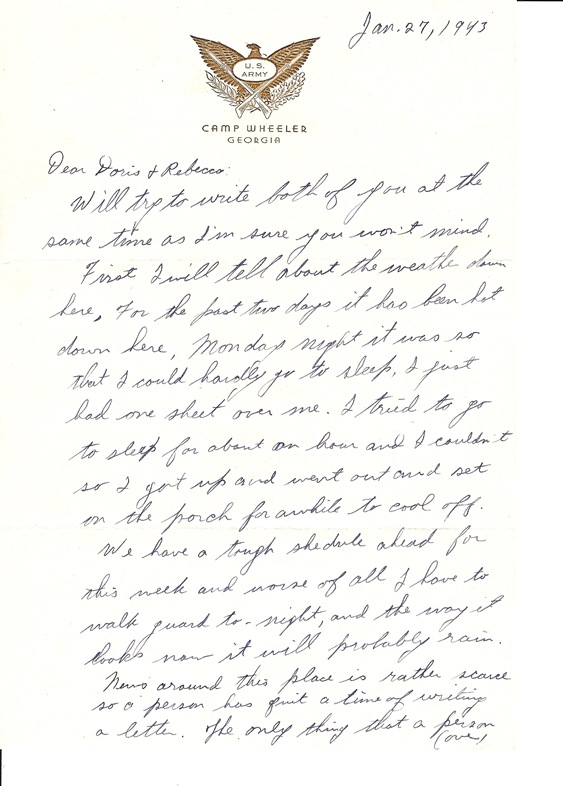 Jan. 27, 1943
U. S.
ARMY
CAMP WHEELER
GEORGIA
Dear Doris & Rebecca:
Will try to write both of you at the
same time as I'm sure you won't mind.
First I will tell about the weathe down
here, For the past two days it has been hot
down here, Monday night it was so
that I could hardly go to sleep, I just
had one sheet over me. I tried to go
to sleep for about an hour and I couldn't
so I got up and went out and set
on the porch for awhile to cool off.
We have a tough shedule ahead for
this week and worse of all I have to
walk guard to-night, and the way it
looks now it will probably rain.
News around this place is rather scarce
so a person has quit a time of writing
a letter. The only thing that a person
(over)